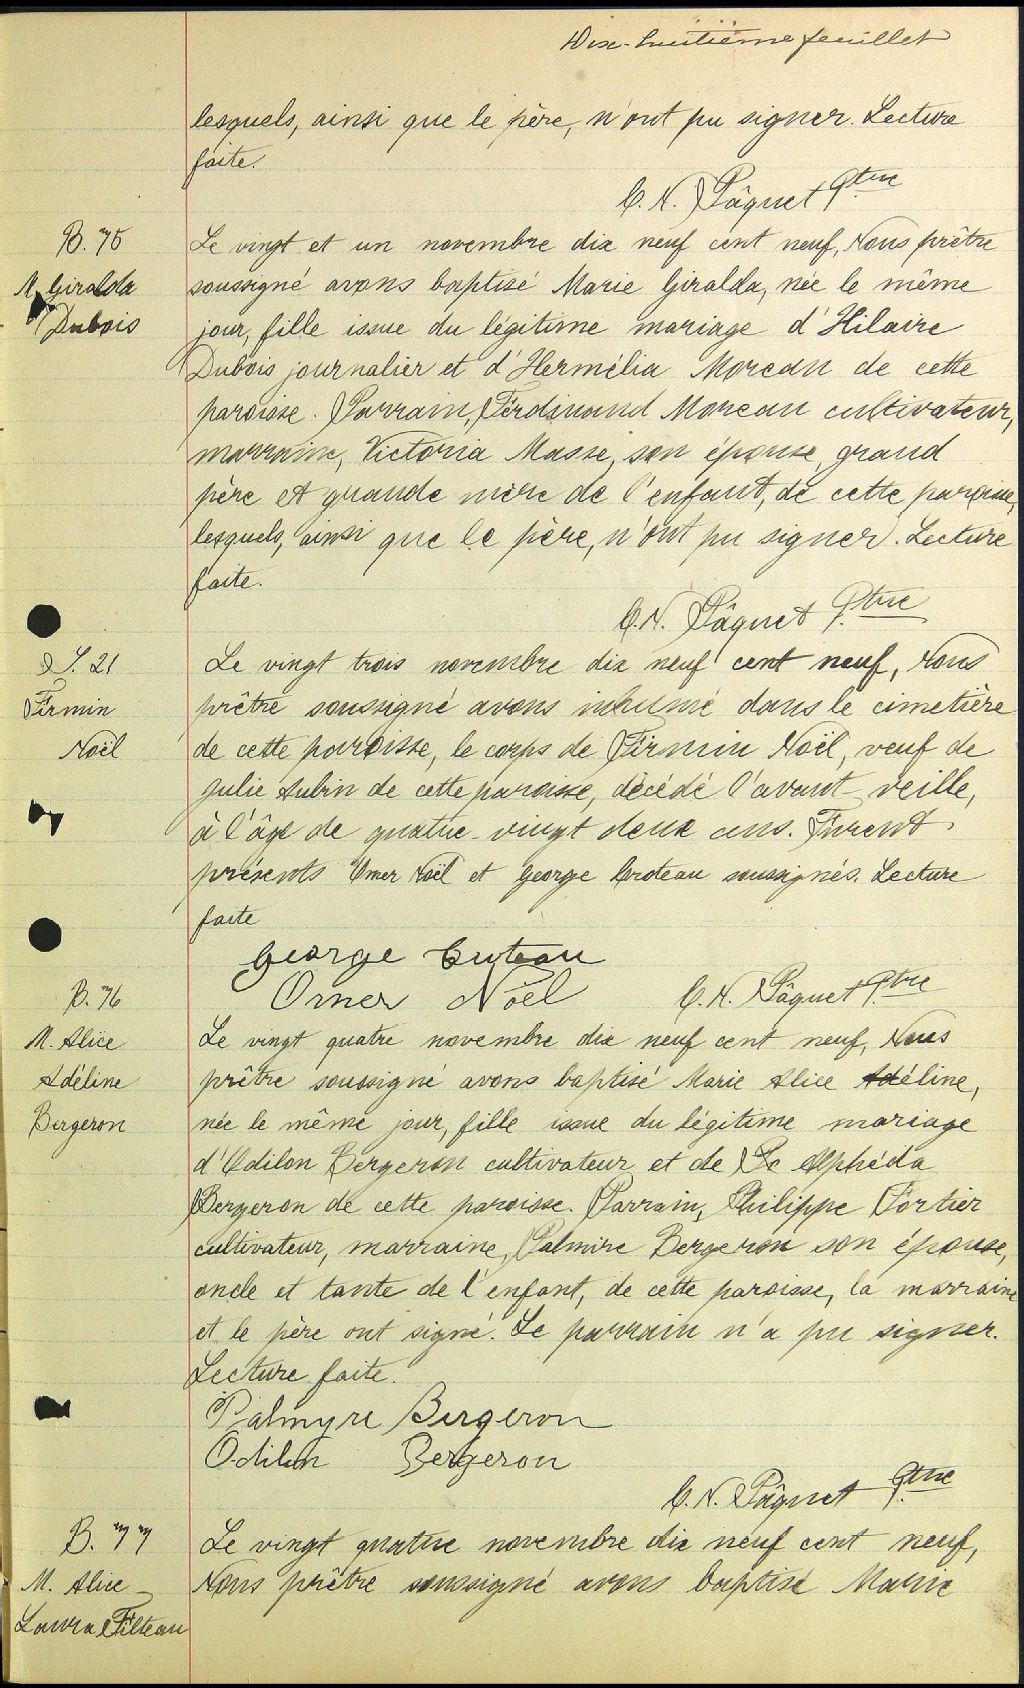 Dix-huitième feuillet
lesquels, ainsi que le père, n'ont pu signer. Lecture
faite.
C. N. Pâquet Ptre
B. 75
M. Giralda
Dubois
Le vingt et un novembre dix neuf cent neuf, Nous prêtre
soussigné avons baptisé Marie Giralda, née le même
jour, fille issue du légitime mariage d'Hilaire
Dubois journalier et d'Hermélia Moreau de cette
paroisse. Parrain, Ferdinand Moreau cultivateur,
marraine, Victoria Masse, son épouse, grand
père et grande mère de l'enfant, de cette paroisse,
lesquels, ainsi que le père, n'ont pu signer. Lecture
faite.
C. N. Pâquet Ptre
S. 21
Firmin
Noël
Le vingt trois novembre dix neuf cent neuf, Nous
prêtre soussigné avons inhumé dans le cimetière
de cette paroisse, le corps de Firmin Noël, veuf de
Julie Aubin de cette paroisse, décédé l'avant-veille,
à l'âge de quatre-vingt deux ans. Furent
présents Omer Noël et George Croteau soussignés. Lecture
faite
George Croteau
Omer Noël
C. N. Pâquet Ptre
B. 76
M. Alice
Adéline
Bergeron
Le vingt quatre novembre dix neuf cent neuf, Nous
prêtre soussigné avons baptisé Marie Alice Adéline,
née le même jour, fille issue du légitime mariage
d'Odilon Bergeron cultivateur et de Alphéda
Bergeron de cette paroisse. Parrain, Philippe Fortier
cultivateur, marraine, Palmire Bergeron son épouse,
oncle et tante de l'enfant, de cette paroisse, la marraine
et le père ont signé. Le parrain n'a pu signer.
Lecture faite.
Palmyre Bergeron
Odilon Bergeron
C. N. Pâquet Ptre
B. 77
M. Alice
Laura Filteau
Le vingt quatre novembre dix neuf cent neuf,
Nous prêtre soussigné avons baptisé Marie